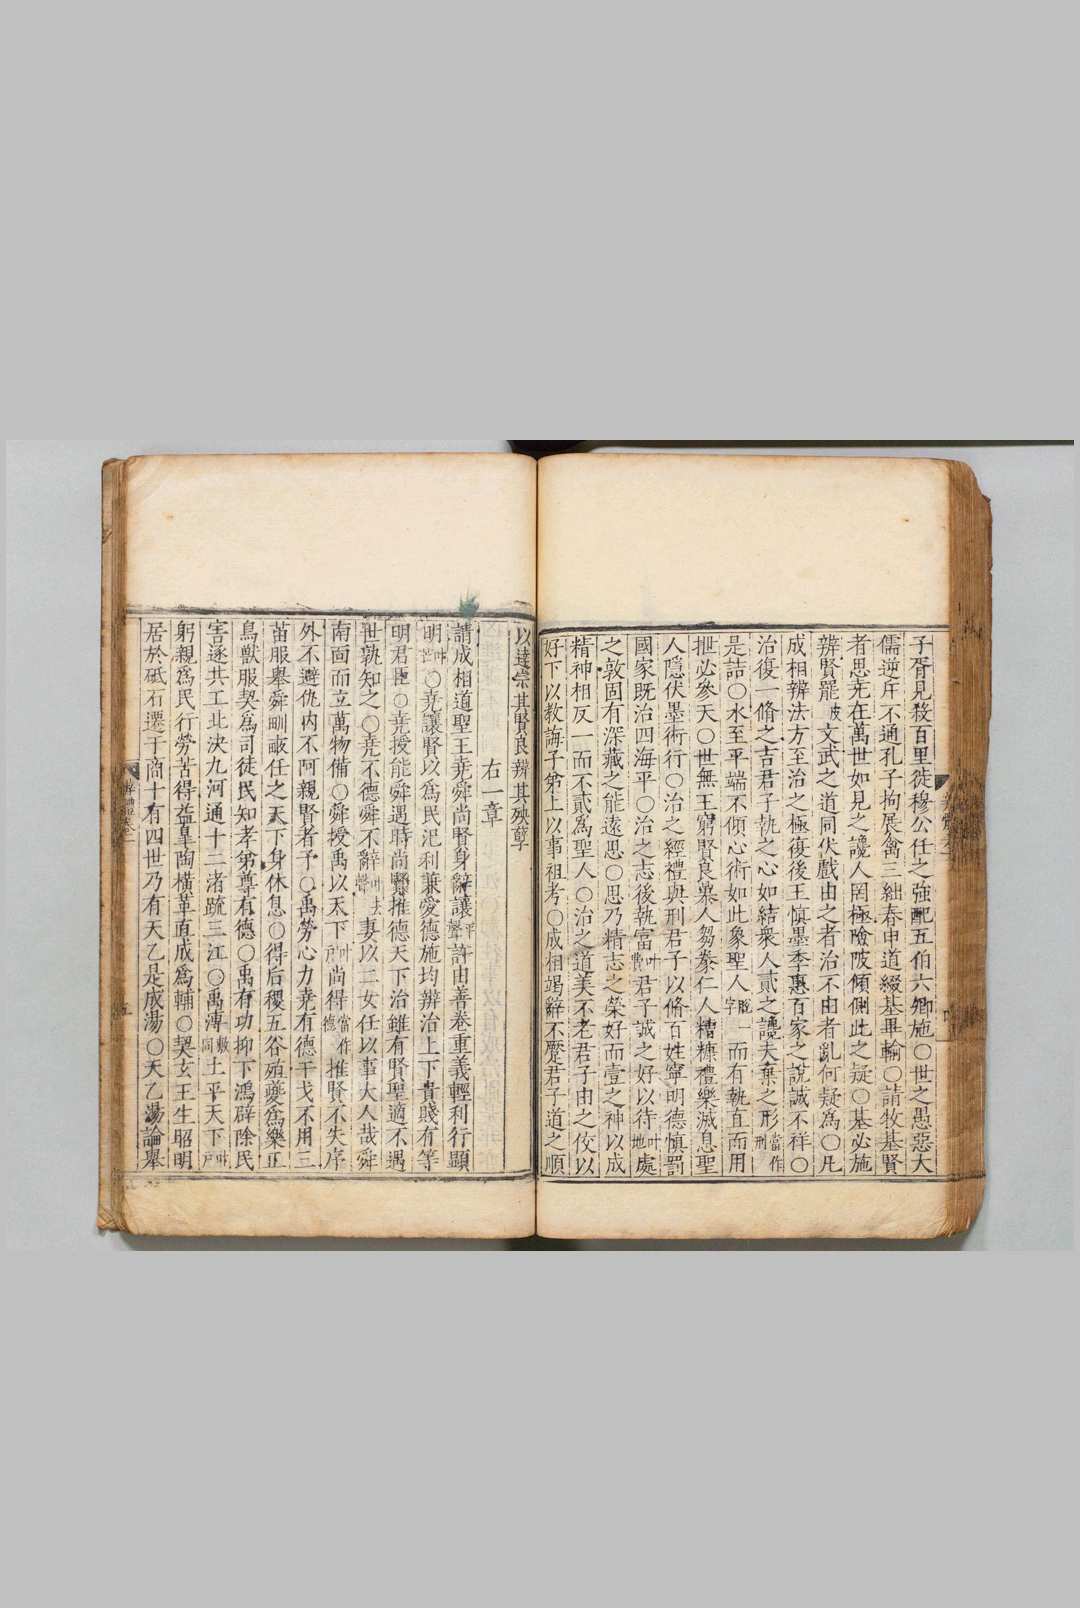 子胥見殺百里徙穆公任之強配五伯六卿施〇世之愚惡大
儒逆斥不通孔子拘展禽三絀春申道綴基畢輸〇請牧基賢
者思堯在萬世如見之讒人罔極險陂傾側此之疑〇基必施
辨賢罷陂文武之道同伏戲由之者治不由者亂何疑爲〇凡
成相辨法方至治之極復後王慎墨季惠百家之說誠不祥〇
治復一脩之吉君子執之心如結衆人貳之讒夫棄之形當作刑
是詰〇水至平端不傾心術如此象聖人脫字一而有執直而用
抴必參天〇世無王窮賢良暴人芻豢仁人糟糠禮樂滅息聖
人隱伏墨術行〇治之經禮與刑君子以脩百姓寧明德慎罰
國家既治四海平〇治之志後執富叶費君子誠之好以待叶地處
之敦固有深藏之能遠思〇思乃精志之榮好而壹之神以成
精神相反一而不貳爲聖人〇治之道美不老君子由之佼以
好下以教誨子弟上以事祖考〇成相竭辭不蹷君子道之順
以達宗其賢良辨其殃孽
右一章
請成相道聖王堯舜尚賢身辭讓平聲許由善卷重義輕利行顯
明叶芒〇堯讓賢以爲民汜利兼愛德施均辨治上下貴賤有等
明君臣〇堯授能舜遇時尚賢推德天下治雖有賢聖適不遇
世孰知之〇堯不德舜不辭叶去聲妻以二女任以事大人哉舜
南面而立萬物備〇舜授禹以天下叶戸尚得當作德推賢不失序
外不避仇内不阿親賢者予〇禹勞心力堯有德干戈不用三
苗服舉舜甽畝任之天下身休息〇得后稷五谷殖夔爲樂正
鳥獸服契爲司徒民知孝弟尊有德〇禹有功抑下鴻辟除民
害逐共工北決九河通十二渚疏三江〇禹溥敷同土平天下叶戸
躬親爲民行勞苦得益皐陶橫革直成爲輔〇契玄王生昭明
居於砥石遷于商十有四世乃有天乙是成湯〇天乙湯論舉